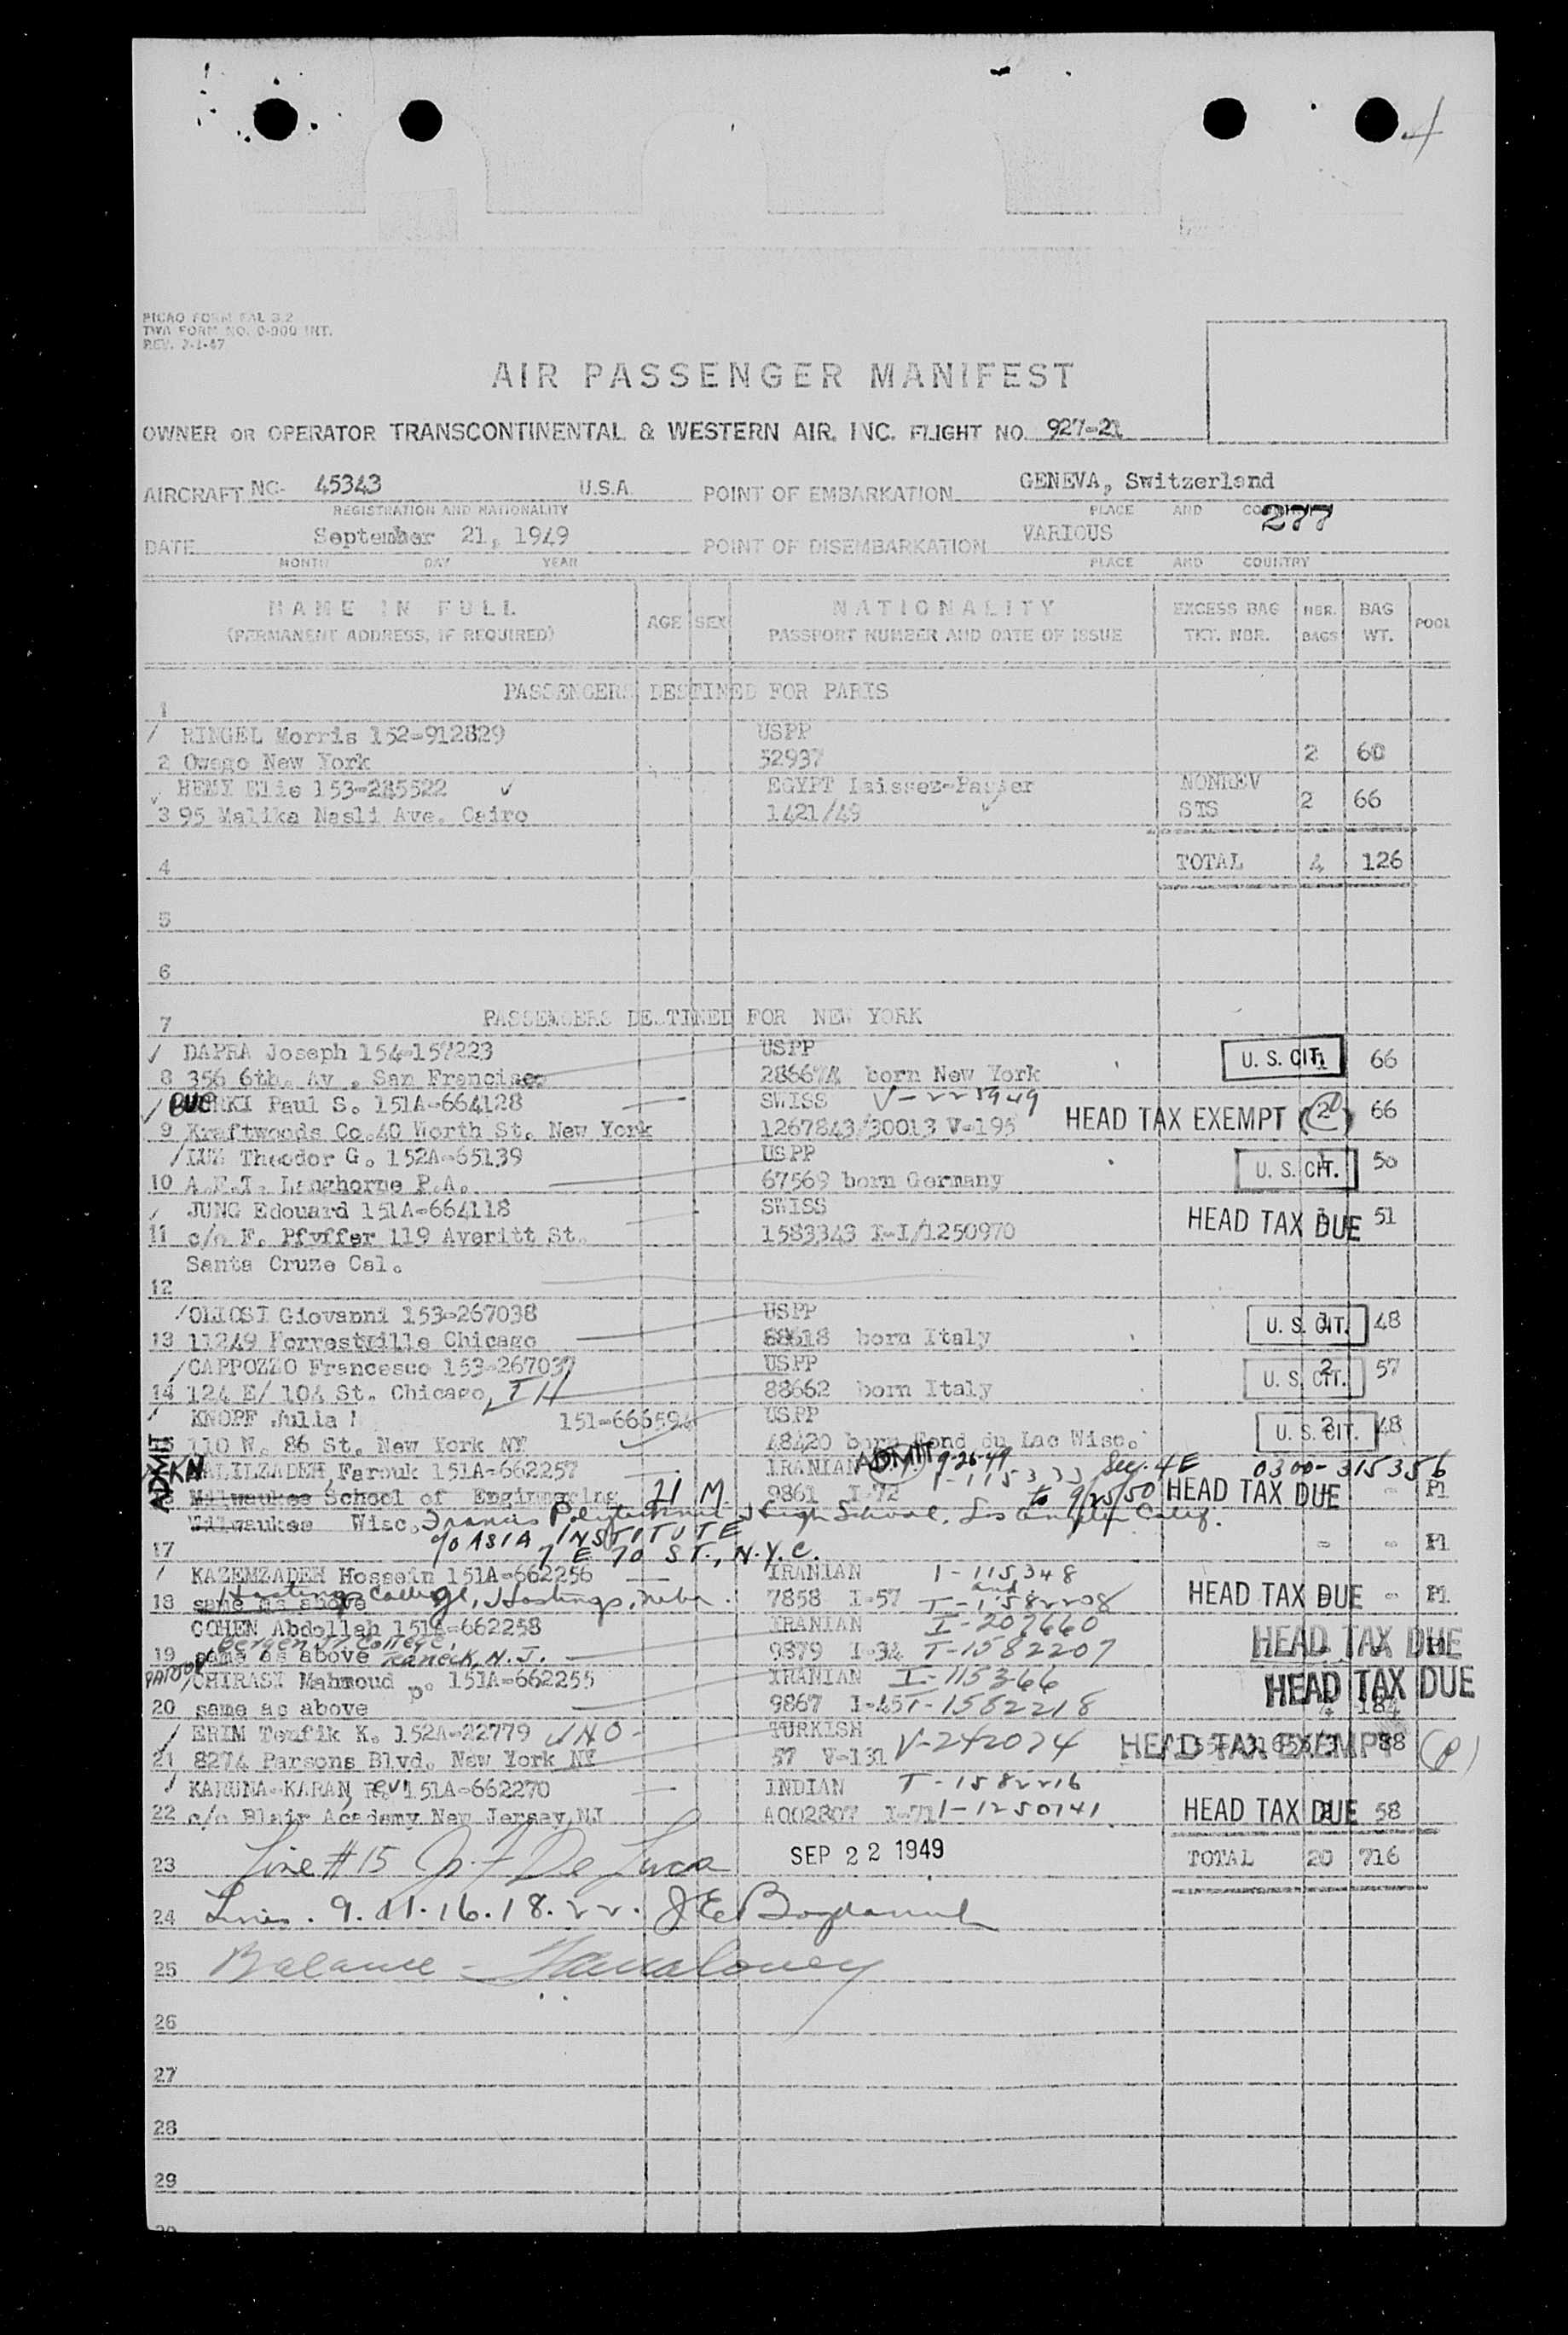 4
PICAO FORM FAL 3.2
TWA FORM NO. O-300 INT.
REV. 2-1-47
AIR PASSENGER MANIFEST
OWNER OR OPERATOR TRANSCONTINENTAL & WESTERN AIR, INC. FLIGHT NO. 927-21
AIRCRAFT NC- 45343 U.S.A. POINT OF EMBARKATION GENEVA, Switzerland
REGISTRATION AND NATIONALITY PLACE AND COUNTRY
277
DATE September 21, 1949 POINT OF DISEMBARKATION VARIOUS
MONTH DAY YEAR PLACE AND COUNTRY
NAME IN FULL AGE SEX NATIONALITY EXCESS BAG NBR. BAG POOL
(PERMANENT ADDRESS, IF REQUIRED) PASSPORT NUMBER AND DATE OF ISSUE TKT. NBR. BAGS WT.
PASSENGERS DESTINED FOR PARIS
1
RINGEL Morris 152-912829 USPP
2 Owego New York 52937 2 60
Elie 153-285522 EGYPT Laissez-Passer NONREV
3 95 Malika Nasli Ave. Cairo 1421/49 STS 2 66
4 TOTAL 4 126
5
6
7 PASSENGERS DESTINED FOR NEW YORK
DAPRA Joseph 154-157223 USPP U. S. CIT. 1 66
8 356 6th. Av. San Francisco 28667A born New York
Paul S. 151A-664128 SWISS V-225949 HEAD TAX EXEMPT 2 66
9 Kraftwoods Co.40 Worth St. New York 1267843/30013 V-195
Theodor G. 152A-65139 USPP U. S. CIT. 50
10 Langhorne P.A. 67569 born Germany
JUNG Edouard 151A-664118 SWISS HEAD TAX DUE 51
11 c/o F. Pfyffer 119 Averitt St. 1583343 I-I/1250970
Santa Cruze Cal.
12
OLIOSI Giovanni 153-267038 USPP U. S. CIT. 48
13 11249 Forrestville Chicago 88618 born Italy
CAPPOZZO Francesco 153-267037 USPP U. S. CIT. 2 57
14 124 E/ 104 St. Chicago, IH 88662 born Italy
KNOPF Julia 151-666594 USPP U. S. CIT. 2 48
110 W. 86 St. New York NY 48420 born Fond du Lac Wisc.
ADMIT
KHALILZADEH, Farouk 151A-662257 IRANIAN ADMIT 9-26-49 Sec. 4E 0300-315356
Milwaukee School of Engineering 21 M 9861 I-72 I-115333 to 9/25/50 HEAD TAX DUE - Pl
Milwaukee Wisc. Francis Polytechnic High School, Los Angeles Calif.
17 c/o ASIA INSTITUTE - - Pl
7 E 70 ST., N.Y.C.
KAZEMZADEH Hossein 151A-662256 IRANIAN I-115348
Hastings College, Hastings, Nebr. and
18 same as above 7858 I-57 T-1582208 HEAD TAX DUE - Pl
COHEN Abdollah 151A-662258 IRANIAN I-207660
Bergen Jr College,
19 same as above Teaneck, N.J. 9879 I-34 T-1582207 HEAD TAX DUE
SHIRASI Mahmoud 151A-662255 IRANIAN I-115366 HEAD TAX DUE
20 same as above 9867 I-45 T-1582218 4 184
ERIM Teufik K. 152A-22779 TURKISH V-242074 HEAD TAX EXEMPT 88
21 8274 Parsons Blvd. New York NY 57 V-131
KARUNA-KARAN, 151A-662270 INDIAN T-1582216
22 c/o Blair Academy New Jersey, NJ A002807 I-71 I-1250741 HEAD TAX DUE 58
23 Line #15 De Luca SEP 22 1949 TOTAL 20 716
24 Lines. 9. 11. 16. 18. 22.
25 Balance -
26
27
28
29